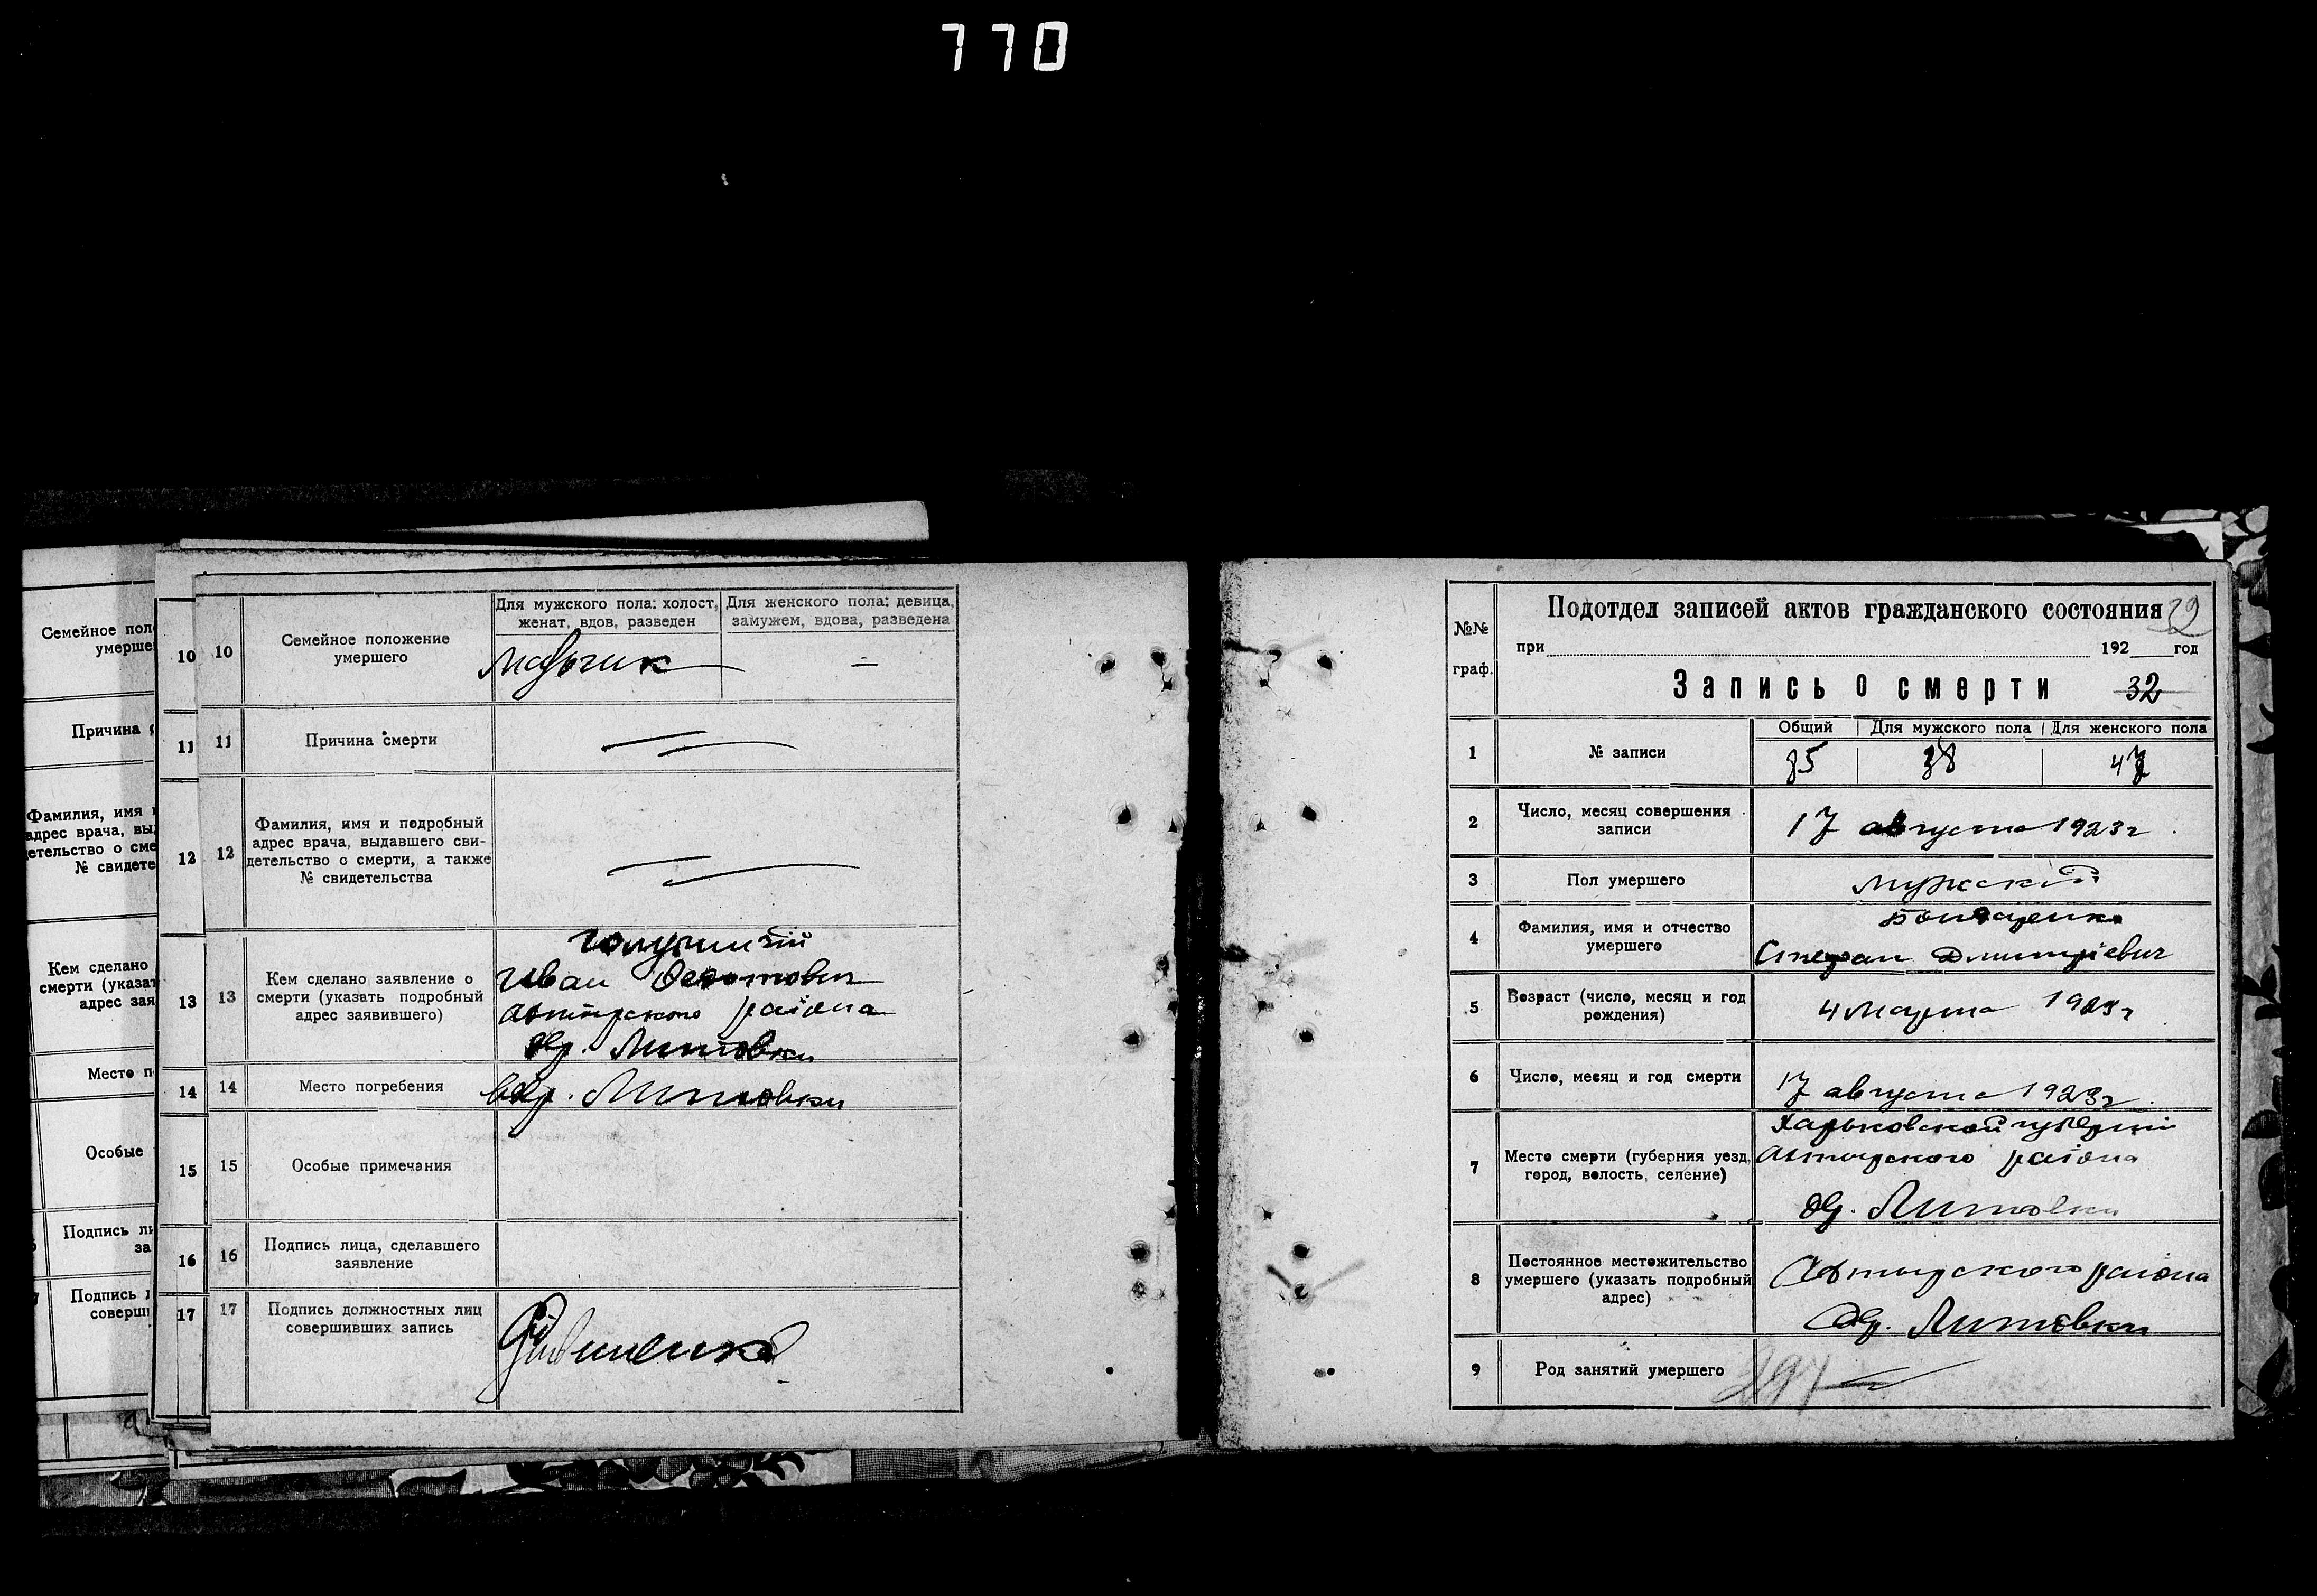 770
Семейное пол
умерше
Причина
Фамилия, имя
адрес врача, вы
етельство о сме
№ свидете
Кем сделано
смерти (указат
адрес зая
Место п
Особые
Подпись ли
за
Подпись
соверш
10
11
12
13
14
15
16
17
10
Семейное положение
умершего
Для мужского пола: холост,
женат, вдов, разведен
Для женского пола: девица,
замужем, вдова, разведена
мальчик
11
Причина смерти
12
Фамилия, имя и подробный
адрес врача, выдавшего сви-
детельство о смерти, а также
№ свидетельства
13
Кем сделано заявление о
смерти (указать подробный
адрес заявившего)
Иван
района
Литовки
14
Место погребения
Литовки
15
Особые примечания
16
Подпись лица, сделавшего
заявление
17
Подпись должностных лиц
совершивших запись
№№
граф.
Подотдел записей актов гражданского состояния
при 192 год
Запись о смерти 32
1
№ записи
Общий
Для мужского пола
Для женского пола
85
38
47
2
Число, месяц совершения
записи
17 августа 1923 г
3
Пол умершего
мужской
4
Фамилия, имя и отчество
умершего
Бондаренко
Стефан Дмитріевич
5
Возраст (число, месяц и год
рождения)
4 Марта 1923 г
6
Число, месяц и год смерти
17 августа 1923 г
7
Место смерти (губерния уезд,
город, волость, селение)
Харьковской губерніи
Ахтырского раіона
Литовки
8
Постоянное местожительство
умершего (указать подробный
адрес)
Ахтырского раіона
Литовки
9
Род занятий умершего